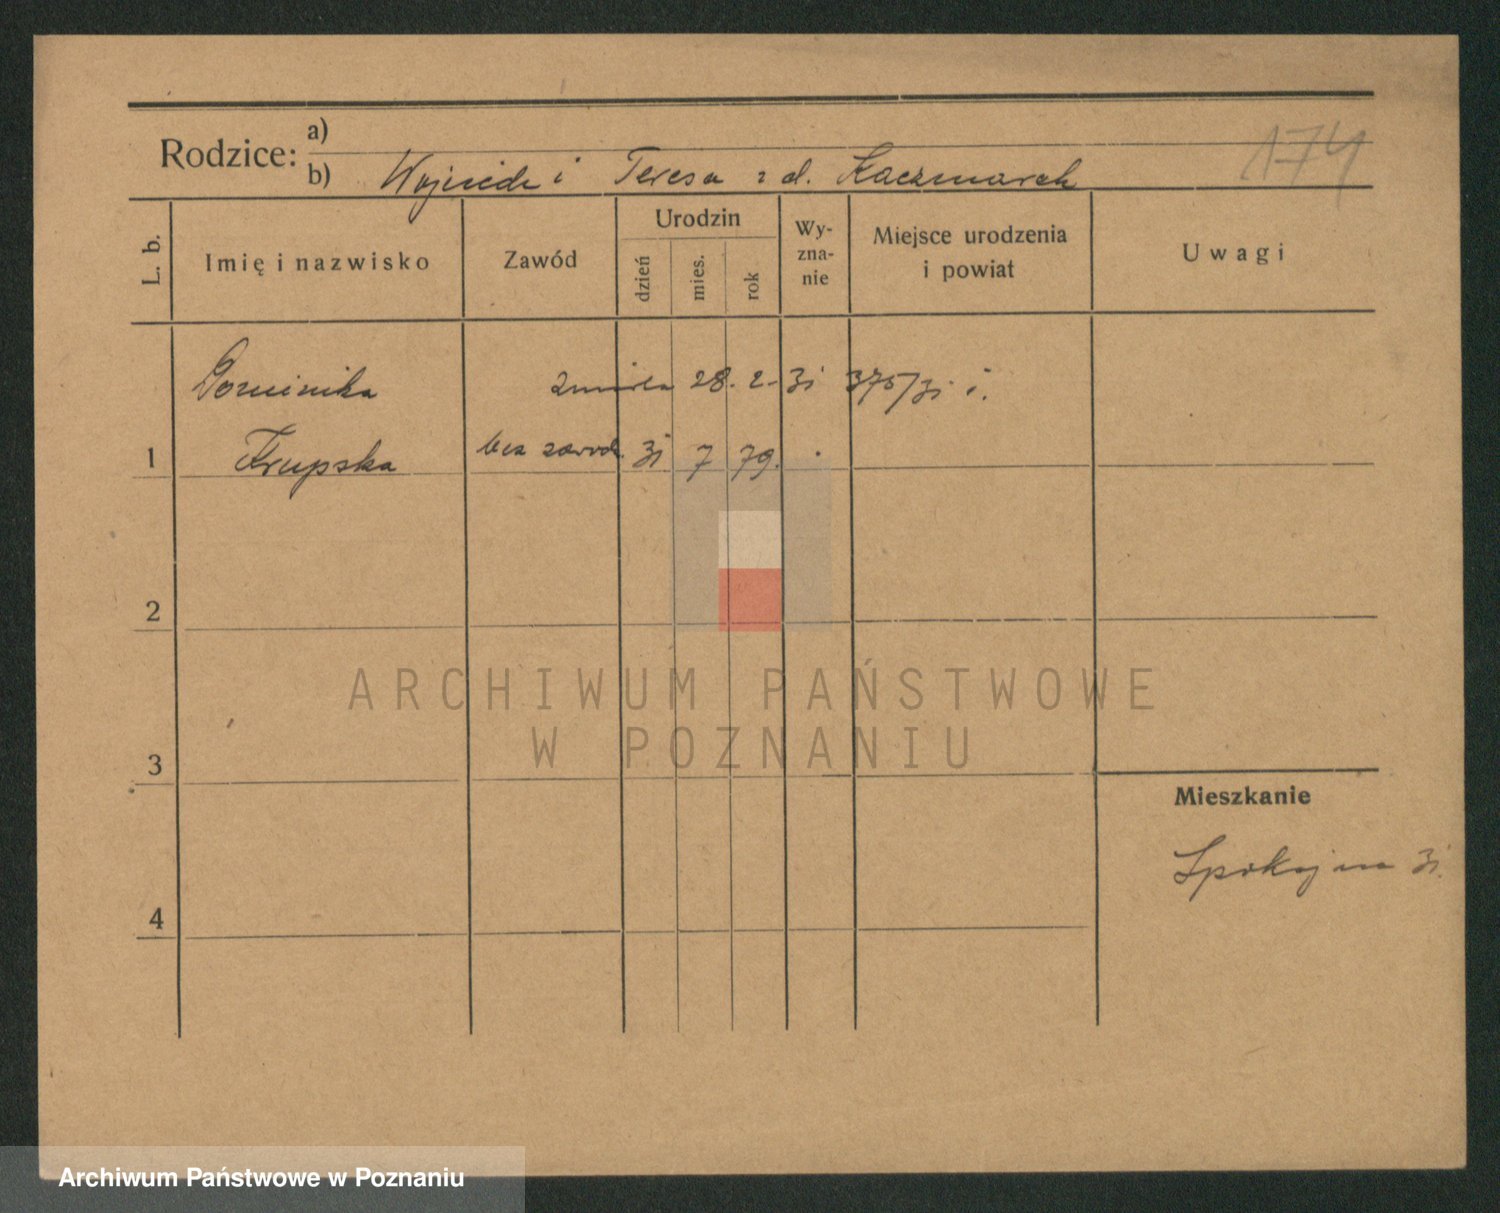 174
Rodzice: a)
b) Wojciech i Teresa z d. Kaczmarek
L. b.
Imię i nazwisko
Zawód
Urodzin
dzień
mies.
rok
Wy-
zna-
nie
Miejsce urodzenia
i powiat
Uwagi
Dominika zmarła 28. 2. 31 375/31 i.
1 Krupska bez zawodu 31 7 79.
2
3
4
Mieszkanie
Spokojna 31.
ARCHIWUM PAŃSTWOWE
W POZNANIU
Archiwum Państwowe w Poznaniu